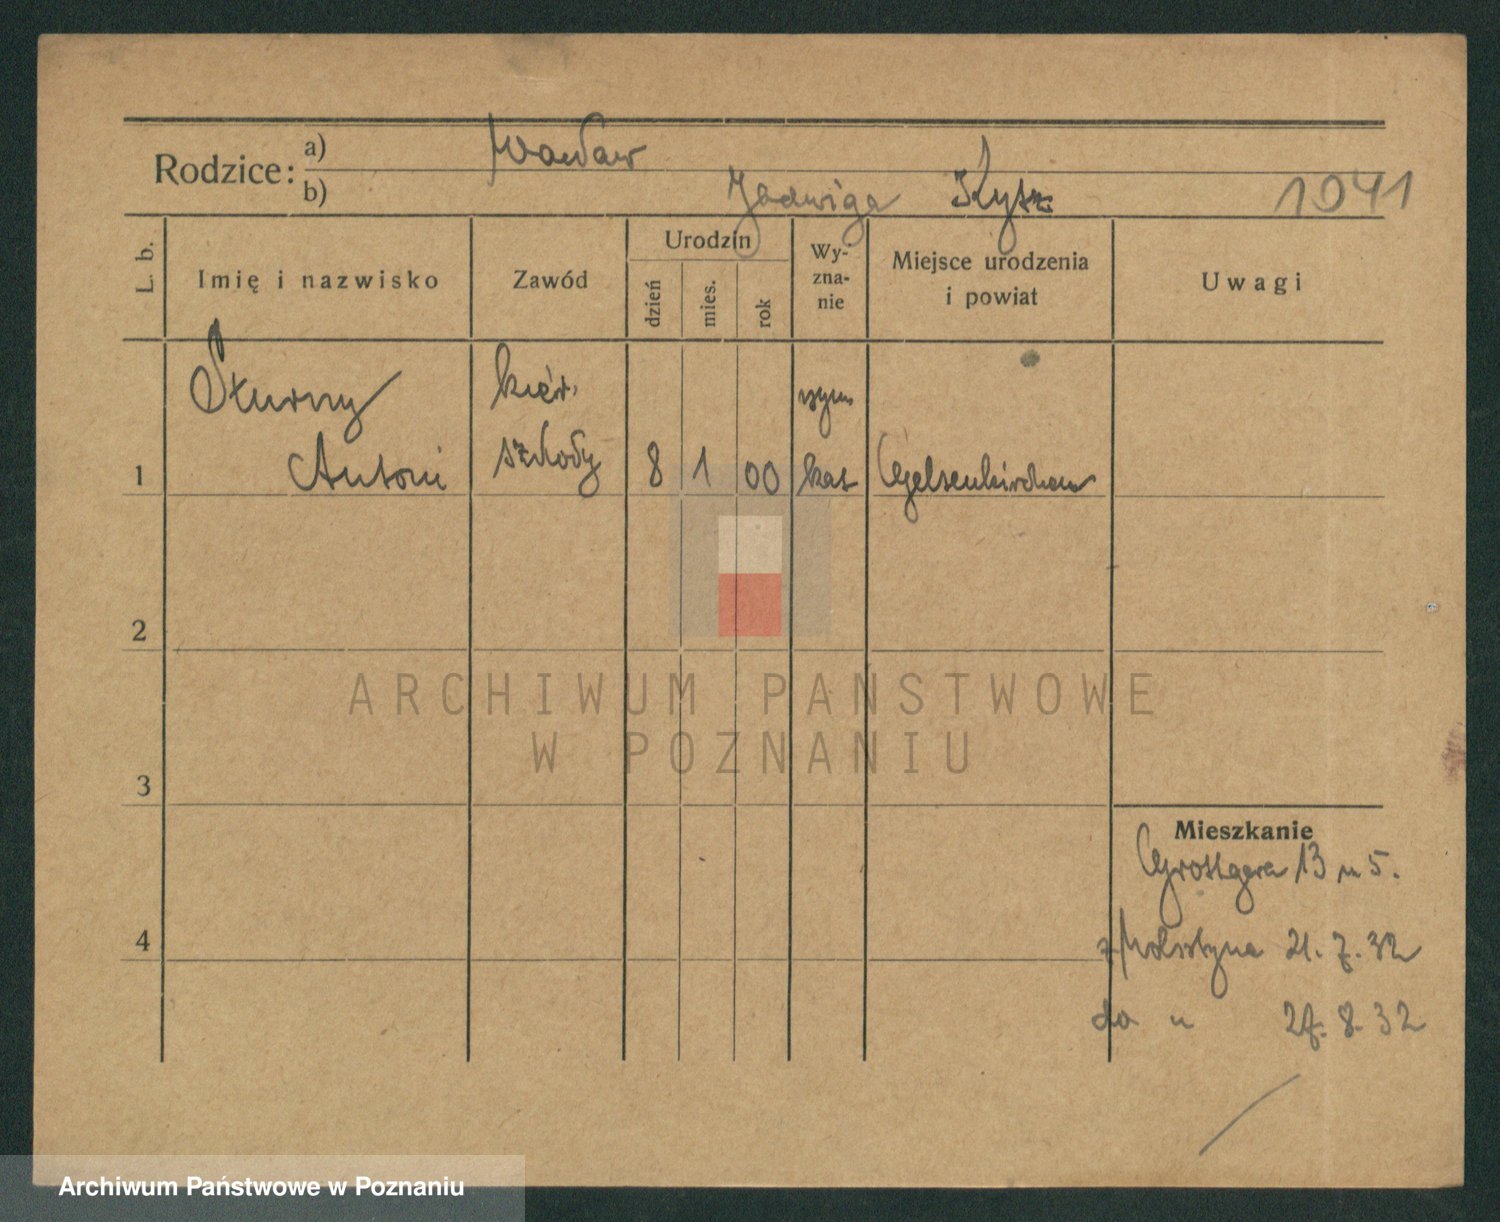 Rodzice: a) Wacław
b) Jadwiga Kysz 1941
L. b. Imię i nazwisko Zawód Urodzin dzień mies. rok Wy-zna-nie Miejsce urodzenia i powiat Uwagi
Sturny kier.
1 Antoni szkoły 8 1 00 rzym kat Gelsenkirchen
2
ARCHIWUM PAŃSTWOWE
W POZNANIU
3
Mieszkanie
13 m 5.
4 z 21. 7. 32
do " 27. 8. 32
Archiwum Państwowe w Poznaniu